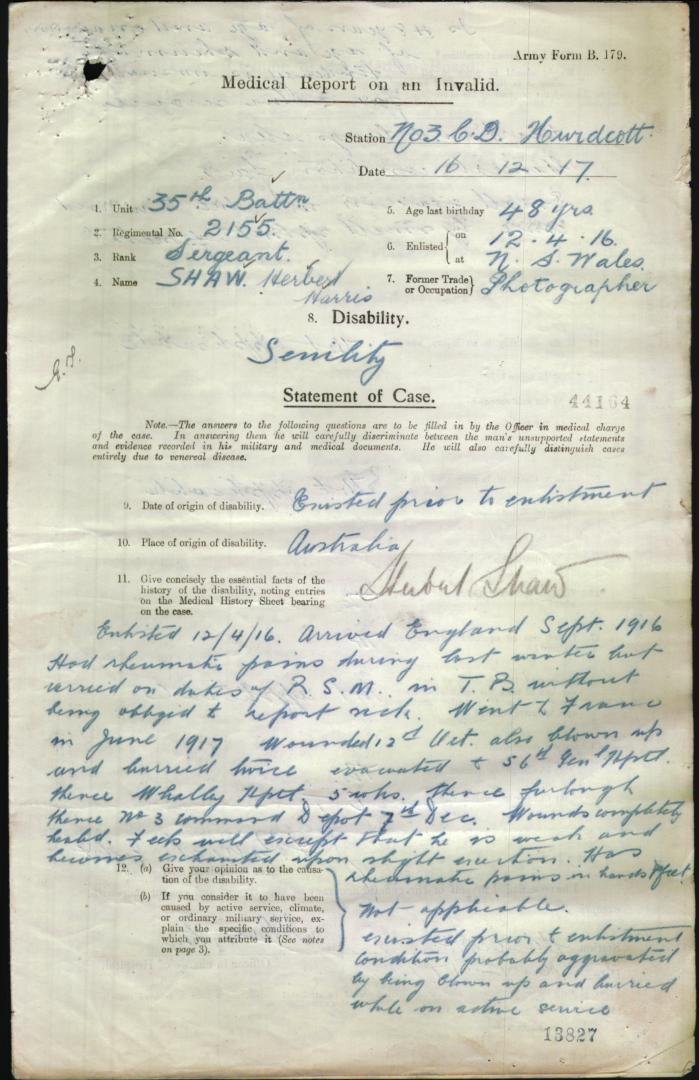 Army Form B. 179.
Medical Report on an Invalid.
Station No3 C.D. Hurdcott
Date 16 12 17.
1. Unit 35th Battn
2. Regimental No. 2155
3. Rank Sergeant.
4. Name SHAW. Herbert
Harris
5. Age last birthday 48 yrs.
6. Enlisted { on 12.4.16.
at N. S. Wales.
7. Former Trade
or Occupation} Photographer
8. Disability.
Senility
Statement of Case.
44164
Note.—The answers to the following questions are to be filled in by the Officer in medical charge
of the case. In answering them he will carefully discriminate between the man's unsupported statements
and evidence recorded in his military and medical documents. He will also carefully distinguish cases
entirely due to venereal disease.
9. Date of origin of disability. Existed prior to enlistment
10. Place of origin of disability. Australia
11. Give concisely the essential facts of the
history of the disability, noting entries
on the Medical History Sheet bearing
on the case.
Herbert Shaw
Enlisted 12/4/16. Arrived England Sept. 1916
Had rheumatic pains during last winter but
carried on duties of R.S.M. in T.B. without
being obliged to report sick. Went to France
in June 1917 Wounded 12th Oct. also blown up
and burried twice evacuated to 56th Genl Hptl.
thence Whalley Hptl 5 wks. thence furlough
thence No 3 command Depot 7th Dec. Wounds completely
heald. Feels well except that he is weak and
becomes exhausted upon slight exertion. Has
rheumatic pains in hands & feet
12. (a) Give your opinion as to the causa-
tion of the disability.
(b) If you consider it to have been
caused by active service, climate,
or ordinary military service, ex-
plain the specific conditions to
which you attribute it (See notes
on page 3).
Not applicable.
existed prior to enlistment
Condition probably aggravated
by being blown up and burried
while on active service
13827